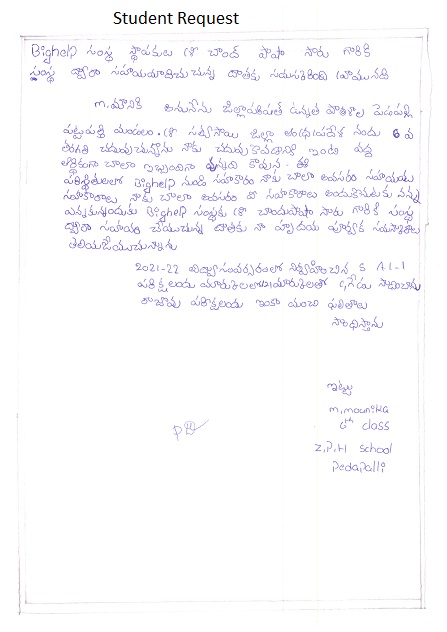 Student Request
Bighelp సంస్థ స్థాపకులు శ్రీ చాంద్ పాషా సారు గారికి
సంస్థ ద్వారా సహాయపడుచున్న దాతకు నమస్కరించి వ్రాయునది
m. మౌనిక అనునేను జిల్లా పరిషత్ ఉన్నత పాఠశాల పెడపల్లి
పుట్టపర్తి మండలం. శ్రీ సత్యసాయి జిల్లా ఆంధ్రప్రదేశ్ నందు 6 వ
తరగతి చదువుచున్నాను నాకు చదువుకొవడానికి ఇంటి వద్ద
ఆర్థికంగా చాలా ఇబ్బందిగా ఉన్నది కావున. ఈ
పరిస్థితులలో Bighelp నుండి సహకారం నాకు చాలా అవసరం సహాయము
సహకారాలు నాకు చాలా అవసరం ఐ సహకారాలు అందుకొనుటకు నన్ను
ఎన్నుకున్నందుకు Bighelp సంస్థకు శ్రీ చాందుపాషా సారు గారికి సంస్థ
ద్వారా సహాయం చేయుచున్న దాతకు నా హృదయ పూర్వక నమస్కారాలు
తెలియజేయుచున్నాను
2021-22 విద్యాసంవత్సరంలో నిర్వహించిన S A-1-1
పరీక్షలయందు మార్కులతో గ్రేడు సాధించాను
రాబోవు పరీక్షలయందు ఇంకా మంచి ఫలితాలు
సాధిస్తాను
ఇట్లు
m. mounika
6th class
Z.P.H School
Pedapalli